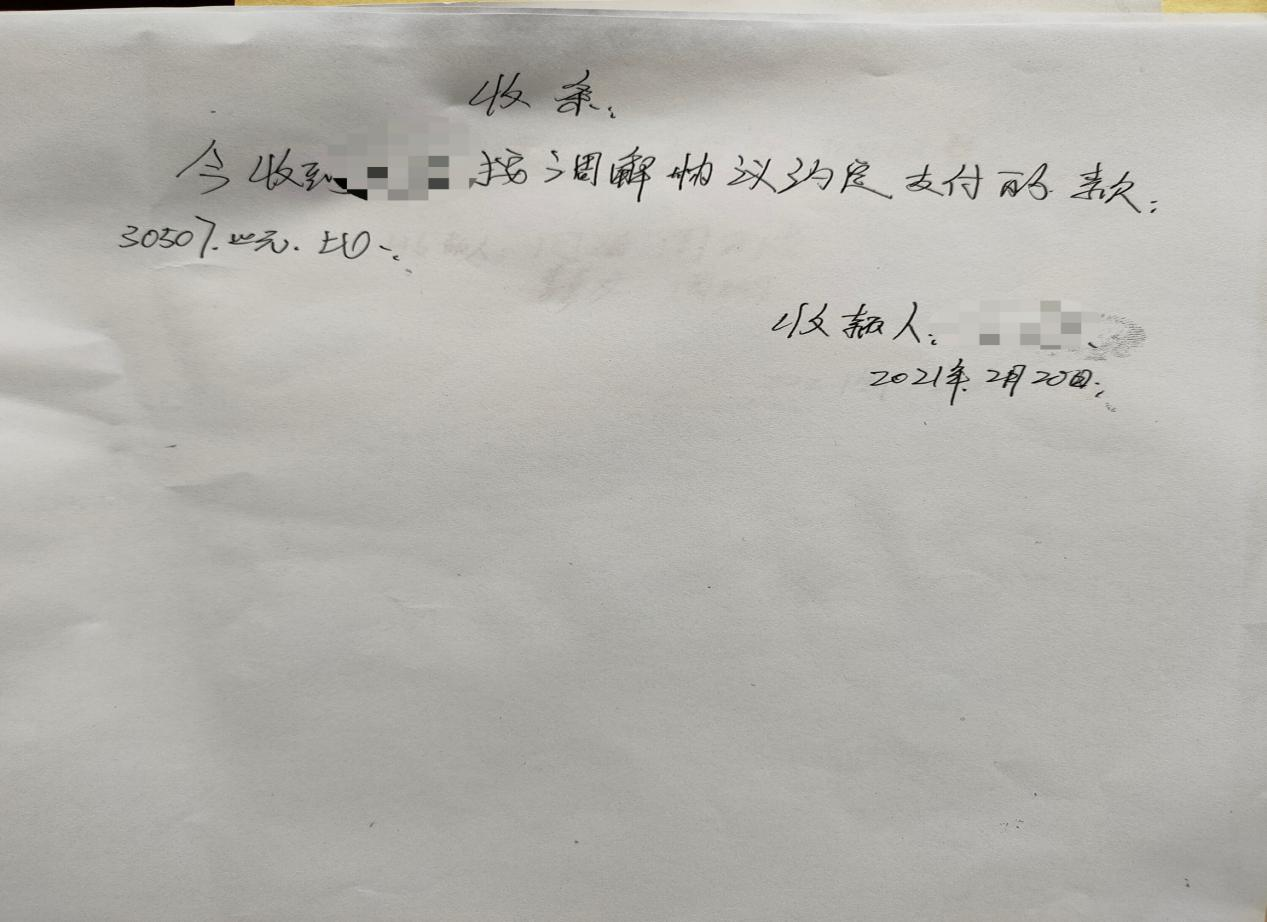 收条.
今收到 按调解协议约定支付的款:
3050 元.
收款人:
2021年2月20日.